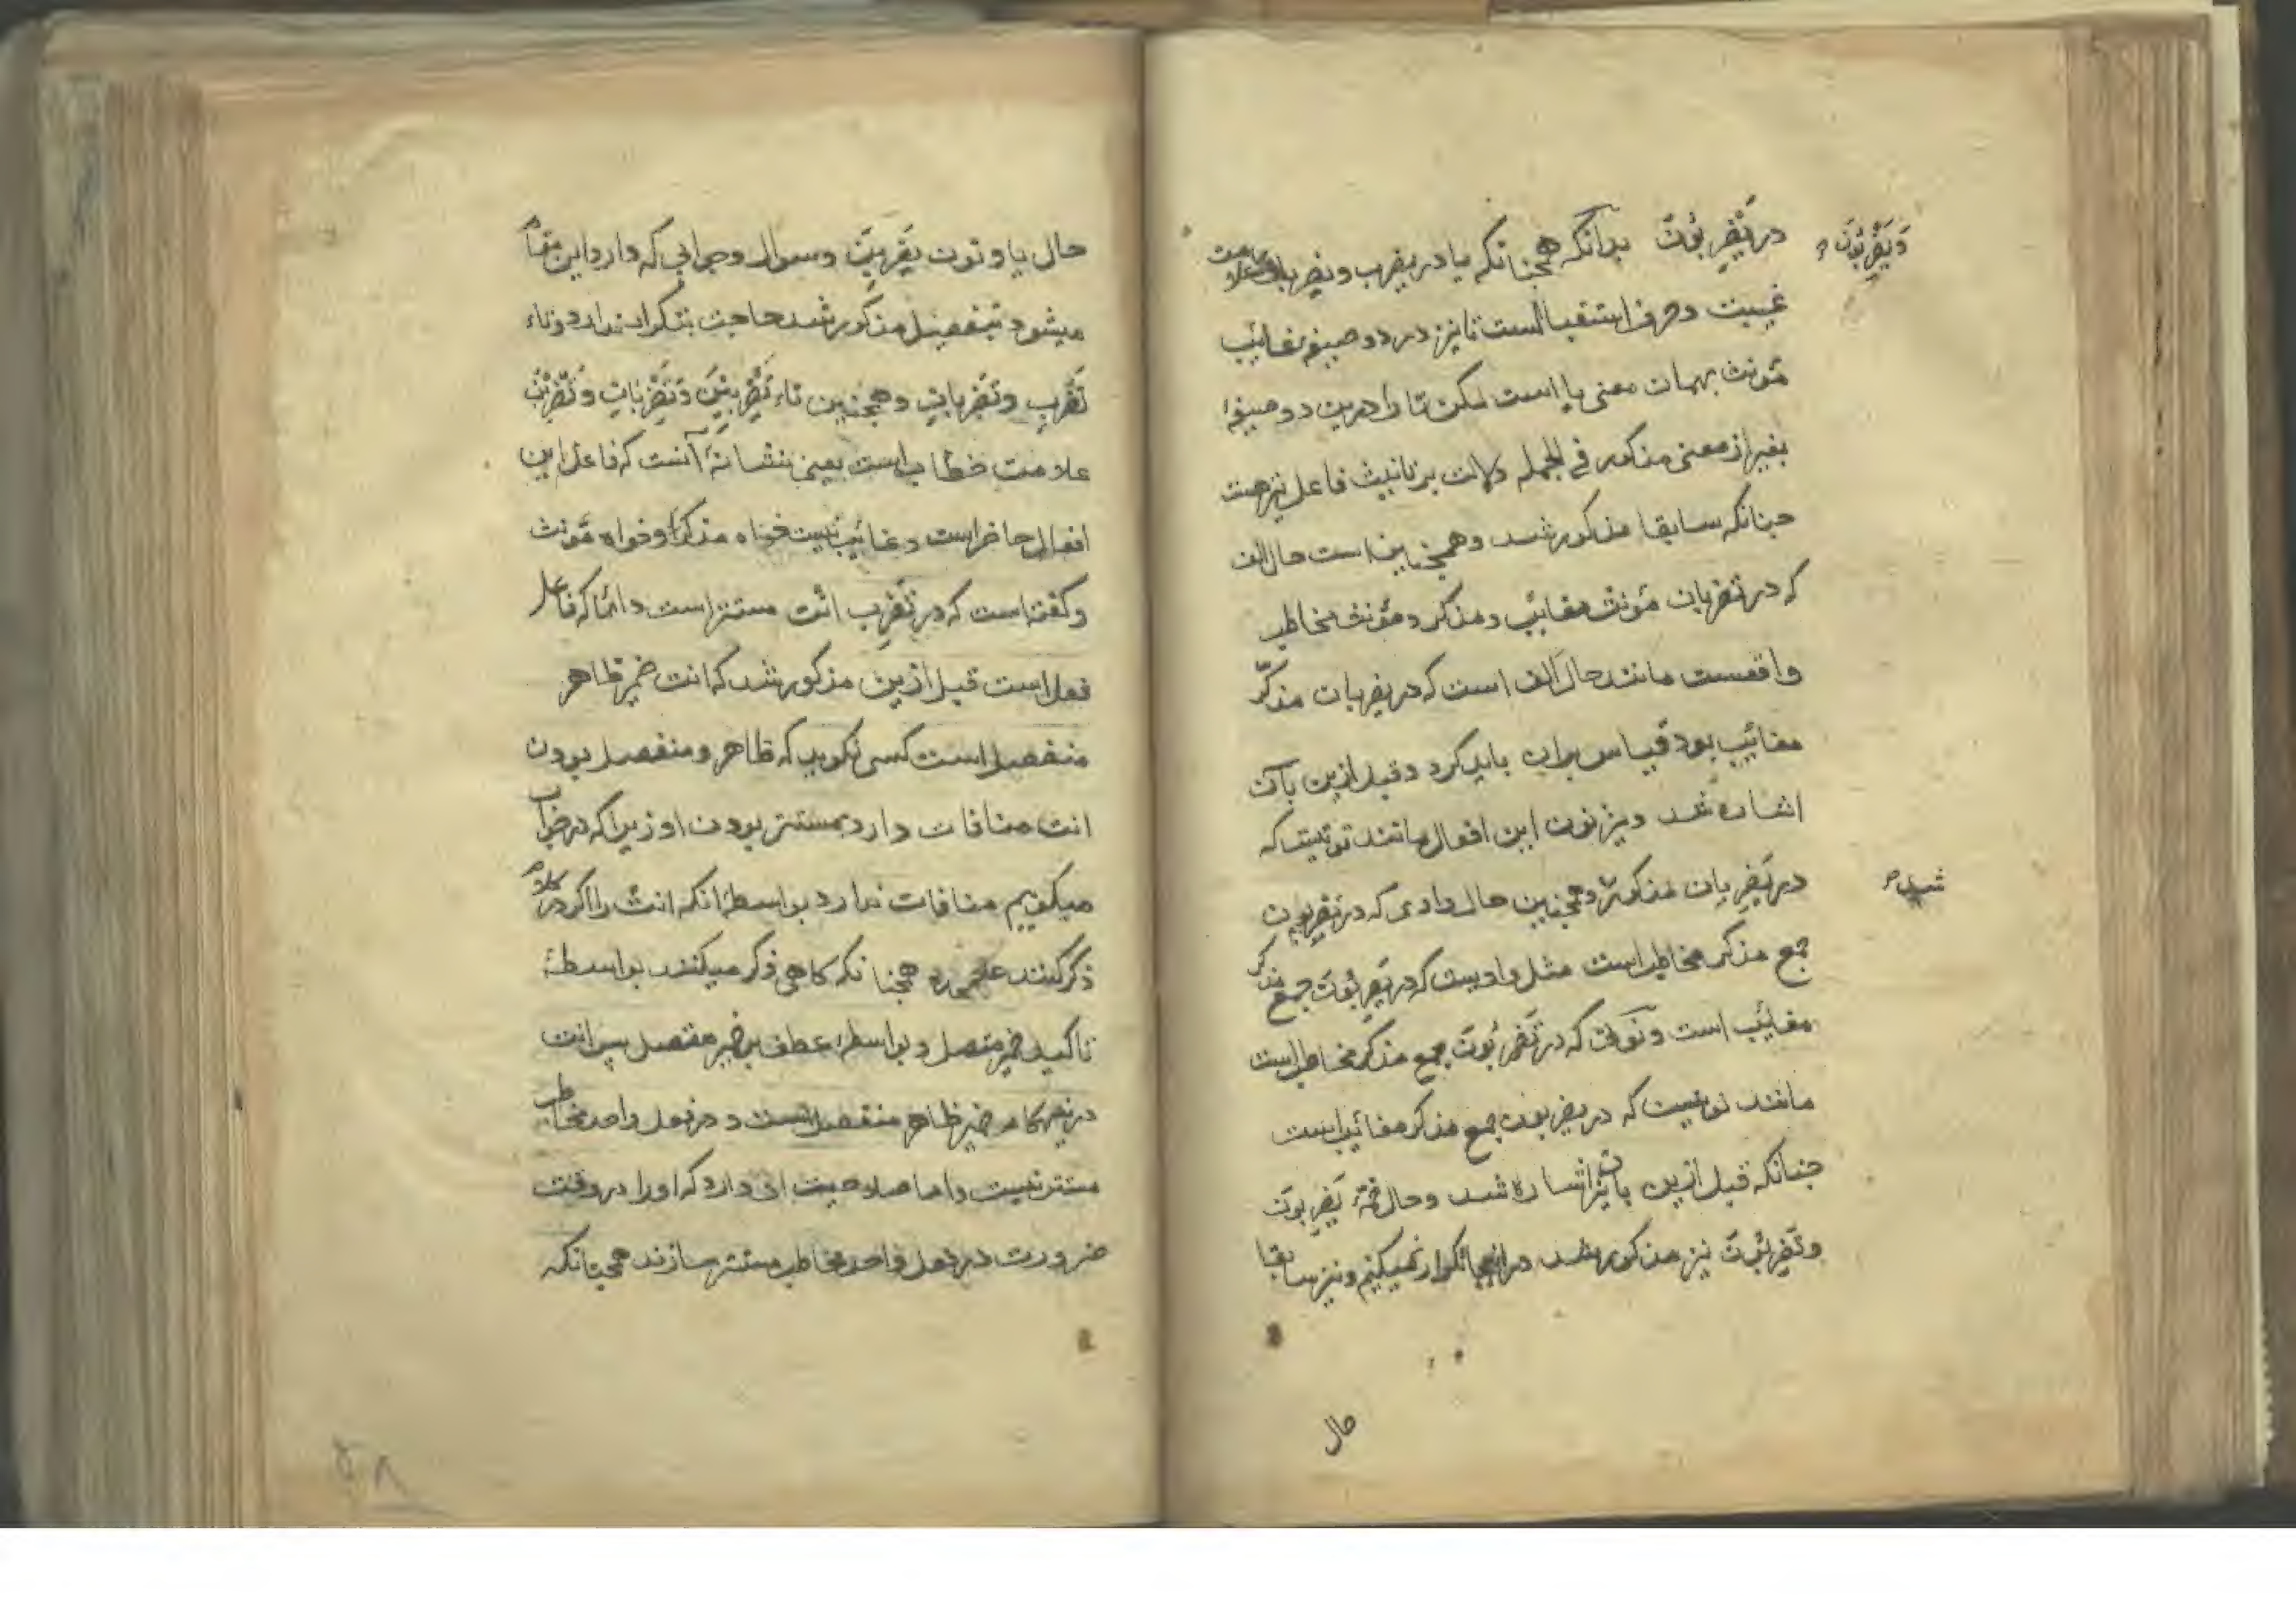 در تَضْرِبُونَ بدانکه همچنانکه یا در یضرب و یضربان علامت
وَیَضْرِبُونَ
غیبت و حرف استقبالست تا نیز در دو صیغه مغائیب
مؤنث بهمان معنی یا است لیکن تا را درین دو صیغه
بغیر از معنی مذکور فی الجمله دلالت بر تانیث فاعل نیز هست
چنانکه سابقا مذکور شد و همچنین است حال الف
که در تضربان مؤنث مغائیب و مذکر و مؤنث مخاطب
واقعست مانند حال الف است که در یضربان مذکّر
مغائیب بود قیاس بران باید کرد و قبل ازین بآن
اشاره شد و نیز نون این افعال مانند نونیست که
در یَضْرِبان مذکور و همچنین حال واوی که در تضربون
شد
جمع مذکر مخاطب است مثل واویست که در یَضْرِبُونَ جمع مذکر
مغائیب است و نونی که در تَضْرِبُونَ جمع مذکر مخاطب است
مانند نونیست که در یضربون جمع مذکر مغائیب است
چنانکه قبل ازین بآن نیز اشاره شد و حال ضمهٔ یَضْرِبُونَ
و تَضْرِبُونَ نیز مذکور شد در اینجا تکرار نمیکنیم و نیز سابقا
حال
حال یا و نون تَضْرِبِینَ و سوال و جوابی که وارد این مقام
میشود بتفصیل مذکور شد حاجت بتکرار ندارد و تاء
تَضْرِب و تَضْرِبان و همچنین تاء تَضْرِبینَ وَتَضْرِبانِ وَتَضْرِبْنَ
علامت خطاب است یعنی نشانهٔ آنست که فاعل این
افعال حاضر است و غائیب نیست خواه مذکر و خواه مؤنث
و گفته است که در تَضْرِب انت مستتر است دائما که فاعل
فعل است قبل ازین مذکور شد که انت ضمیر ظاهر
منفصل است کسی نگوید که ظاهر و منفصل بودن
انت منافات دارد بمستتر بودن او زیرا که در جواب
میگوییم منافات ندارد بواسطهٔ انکه انت را اگر در کلام
ذکر کنند علیحده همچنانکه گاهی ذکر میکنند بواسطهٔ
تاکید ضمیر متصل و بواسطهٔ عطف بر ضمیر متصل پس انت
درینهنگام ضمیر ظاهر منفصل است و در فعل واحد مخاطب
مستتر نیست و اما صلاحیت ان دارد که او را در وقت
ضرورت در فعل واحد مخاطب مستتر سازند همچنانکه
۵۸